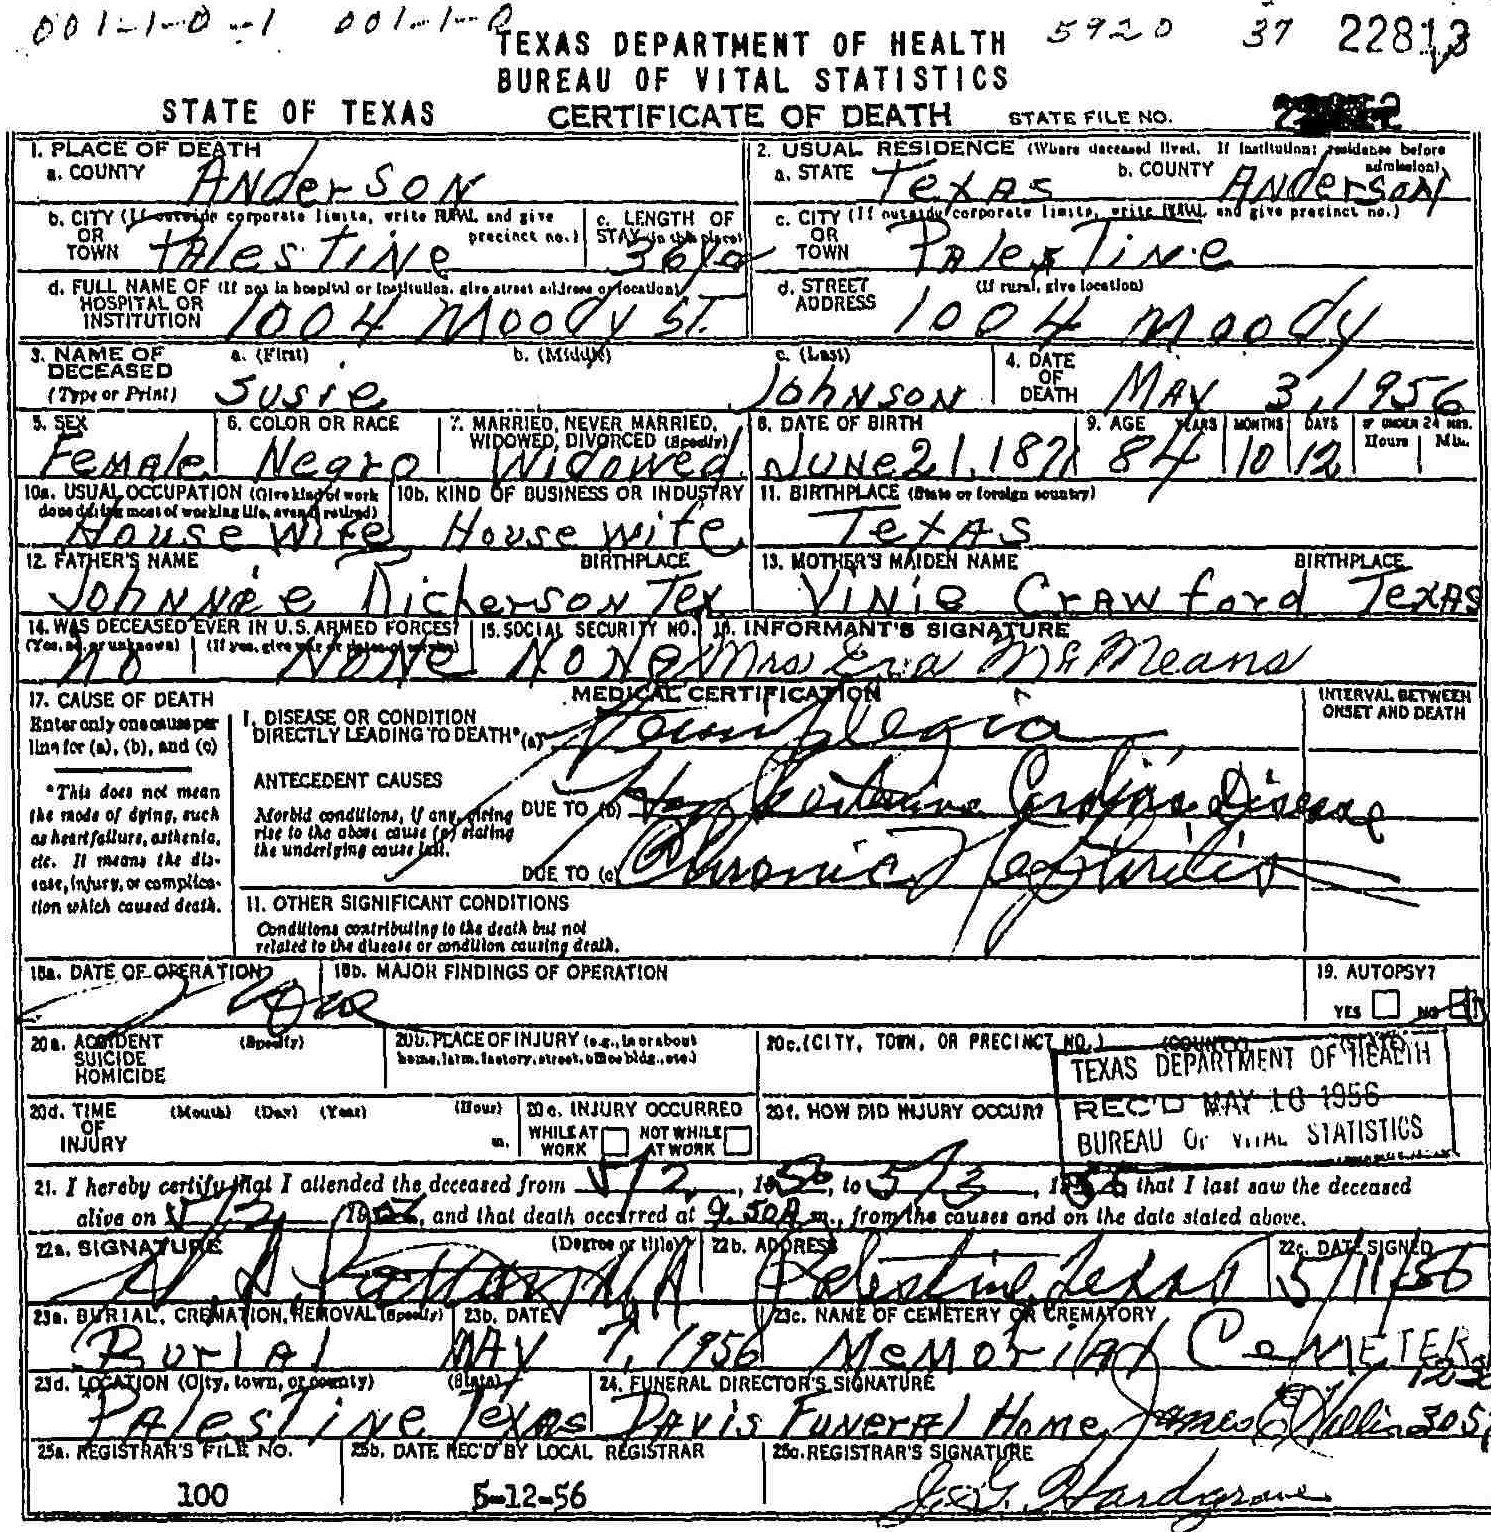 001-1-0-1 001-1-0 5920 37 22813
TEXAS DEPARTMENT OF HEALTH
BUREAU OF VITAL STATISTICS
STATE OF TEXAS CERTIFICATE OF DEATH STATE FILE NO.
1. PLACE OF DEATH
a. COUNTY Anderson
2. USUAL RESIDENCE (Where deceased lived. If institution: residence before admission)
a. STATE Texas b. COUNTY Anderson
b. CITY (If outside corporate limits, write RURAL and give precinct no.) OR TOWN Palestine
c. LENGTH OF STAY (in this place)
c. CITY (If outside corporate limits, write RURAL and give precinct no.) OR TOWN Palestine
d. FULL NAME OF (If not in hospital or institution, give street address or location) HOSPITAL OR INSTITUTION 1004 Moody St.
d. STREET ADDRESS (If rural, give location) 1004 Moody
3. NAME OF DECEASED (Type or Print) a. (First) Susie b. (Middle) c. (Last) Johnson
4. DATE OF DEATH May 3, 1956
5. SEX Female
6. COLOR OR RACE Negro
7. MARRIED, NEVER MARRIED, WIDOWED, DIVORCED (Specify) Widowed
8. DATE OF BIRTH June 21, 1871
9. AGE YEARS 84 MONTHS 10 DAYS 12 IF UNDER 24 HRS. Hours Min.
10a. USUAL OCCUPATION (Give kind of work done during most of working life, even if retired) House Wife
10b. KIND OF BUSINESS OR INDUSTRY House wife
11. BIRTHPLACE (State or foreign country) Texas
12. FATHER'S NAME BIRTHPLACE Johnnie Richerson Tex
13. MOTHER'S MAIDEN NAME BIRTHPLACE Vinie Crawford Texas
14. WAS DECEASED EVER IN U.S. ARMED FORCES? (Yes, no, or unknown) no (If yes, give war or dates of service) None
15. SOCIAL SECURITY NO. None
16. INFORMANT'S SIGNATURE Mrs Eva McMeans
MEDICAL CERTIFICATION
INTERVAL BETWEEN ONSET AND DEATH
17. CAUSE OF DEATH
Enter only one cause per line for (a), (b), and (c)
*This does not mean the mode of dying, such as heart failure, asthenia, etc. It means the disease, injury, or complication which caused death.
I. DISEASE OR CONDITION DIRECTLY LEADING TO DEATH* (a) Hemiplegia
ANTECEDENT CAUSES
Morbid conditions, if any, giving rise to the above cause (a) stating the underlying cause last.
DUE TO (b) Hypertensive Cardiac Disease
DUE TO (c) Chronic Nephritis
11. OTHER SIGNIFICANT CONDITIONS
Conditions contributing to the death but not related to the disease or condition causing death.
18a. DATE OF OPERATION None
18b. MAJOR FINDINGS OF OPERATION
19. AUTOPSY?
YES NO
20a. ACCIDENT SUICIDE HOMICIDE (Specify)
20b. PLACE OF INJURY (e.g., in or about home, farm, factory, street, office bldg., etc.)
20c. (CITY, TOWN, OR PRECINCT NO.) (COUNTY) (STATE)
TEXAS DEPARTMENT OF HEALTH
REC'D MAY 16 1956
BUREAU OF VITAL STATISTICS
20d. TIME OF INJURY (Month) (Day) (Year) (Hour) m.
20e. INJURY OCCURRED WHILE AT WORK NOT WHILE AT WORK
20f. HOW DID INJURY OCCUR?
21. I hereby certify that I attended the deceased from 5/2, 1956, to 5/3, 1956 that I last saw the deceased
alive on 5/2, 19, and that death occurred at 9.50A m., from the causes and on the date stated above.
22a. SIGNATURE (Degree or title)
22b. ADDRESS Palestine, Texas
22c. DATE SIGNED 5/11/56
23a. BURIAL, CREMATION, REMOVAL (Specify) Burial
23b. DATE May 7, 1956
23c. NAME OF CEMETERY OR CREMATORY Memorial Cemeter
23d. LOCATION (City, town, or county) (State) Palestine Texas
24. FUNERAL DIRECTOR'S SIGNATURE Davis Funeral Home James
25a. REGISTRAR'S FILE NO. 100
25b. DATE REC'D BY LOCAL REGISTRAR 5-12-56
25c. REGISTRAR'S SIGNATURE J. G. Hardgrave